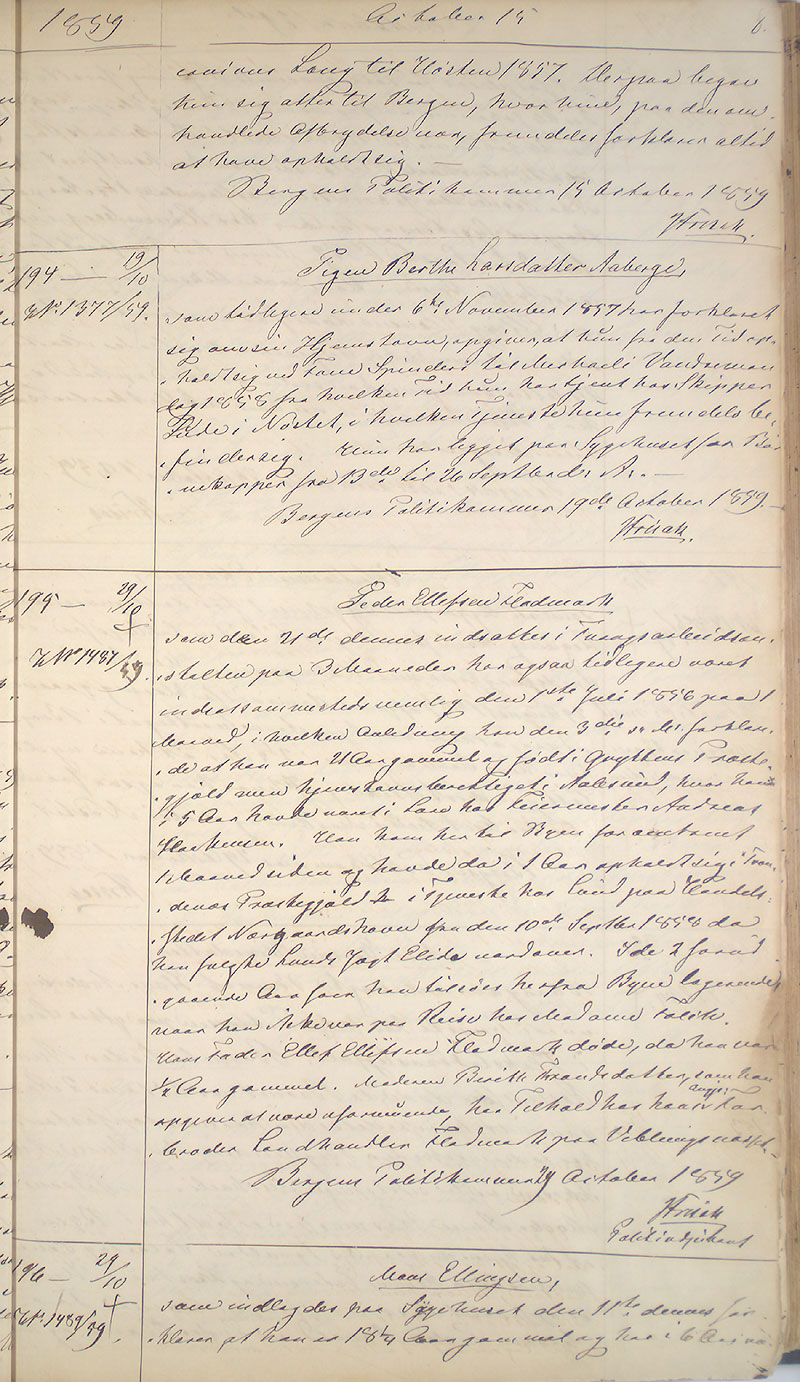 1859
October 15
6.
Lang til Høsten 1857. Derpaa begav
hun sig atter til Bergen, hvor hun, paa den om-
handlede Afbrydelse nær, fremdeles forklarer altid
at have opholdt sig. —
Bergens Politikammer 15 October 1859
Krisak
194 — 19/10
J.No. 1377/59.
Pigen Berthe Larsdatter Aaberge,
som tidligere under 6te November 1857 har forklaret
sig om sin Hjemstavn, opgiver, at hun fra den Tid op-
holdt sig ved Tone Spinderi til Michaeli
dag 1858 fra hvilken Tid hun har tjent hos Skipper
i Nøstet, i hvilken Tjeneste hun fremdeles be-
finder sig. Hun har ligget paa Sygehuset for Bør-
nekopper fra 13de til 26 Septbr d. A. —
Bergens Politikammer 19de October 1859.
Krisak.
195 — 29/10
J No 1487/59.
Peder Ellefsen Fladmark
som den 21de dennes indsattes i Tvangsarbeidsan-
stalten paa 3 Maaneder har ogsaa tidligere været
indsat sammesteds nemlig den 1ste Juli 1856 paa 1
Maaned, i hvilken Anledning han den 3die s. M. forklare-
de at han var 21 Aar gammel og født i Gryttens Præste-
gjæld men hjemstavnsberettiget i Aalesund, hvor han
i 5 Aar havde været i Lære hos Feiermester Andreas
Haakensen. Han kom her til Byen for omtrent
1 Maaned siden og havde da i 1 Aar opholdt sig i Tron-
denæs Præstegjæld i Tjeneste hos Lund paa Handels-
stedet Nærgaardshavn fra den 10de Septbr 1858 da
han fulgte Lunds Jagt Elida nordover. I de 2 forud-
gaaende Aar foer han tilsøes herfra Byen logerende
naar han ikke var paa Reise hos Madame Falck.
Hans Fader Ellef Ellefsen Fladmark døde, da han var
1/2 Aar gammel. Moderen Birith Frandsdatter, som han
opgiver at være uformuende, har Tilhold hos hans angiv: Far-
broder Landhandler Fladmark paa Veblungsnæsset.
Bergens Politikammer 29 October 1859
Krisak
Politiadjutant
96 — 29/10
J No. 1489/59.
Mons Ellingsen,
som indlagdes paa Sygehuset den 11te dennes for-
klarer at han er 18 1/4 Aar gammel og har i 6 Aar